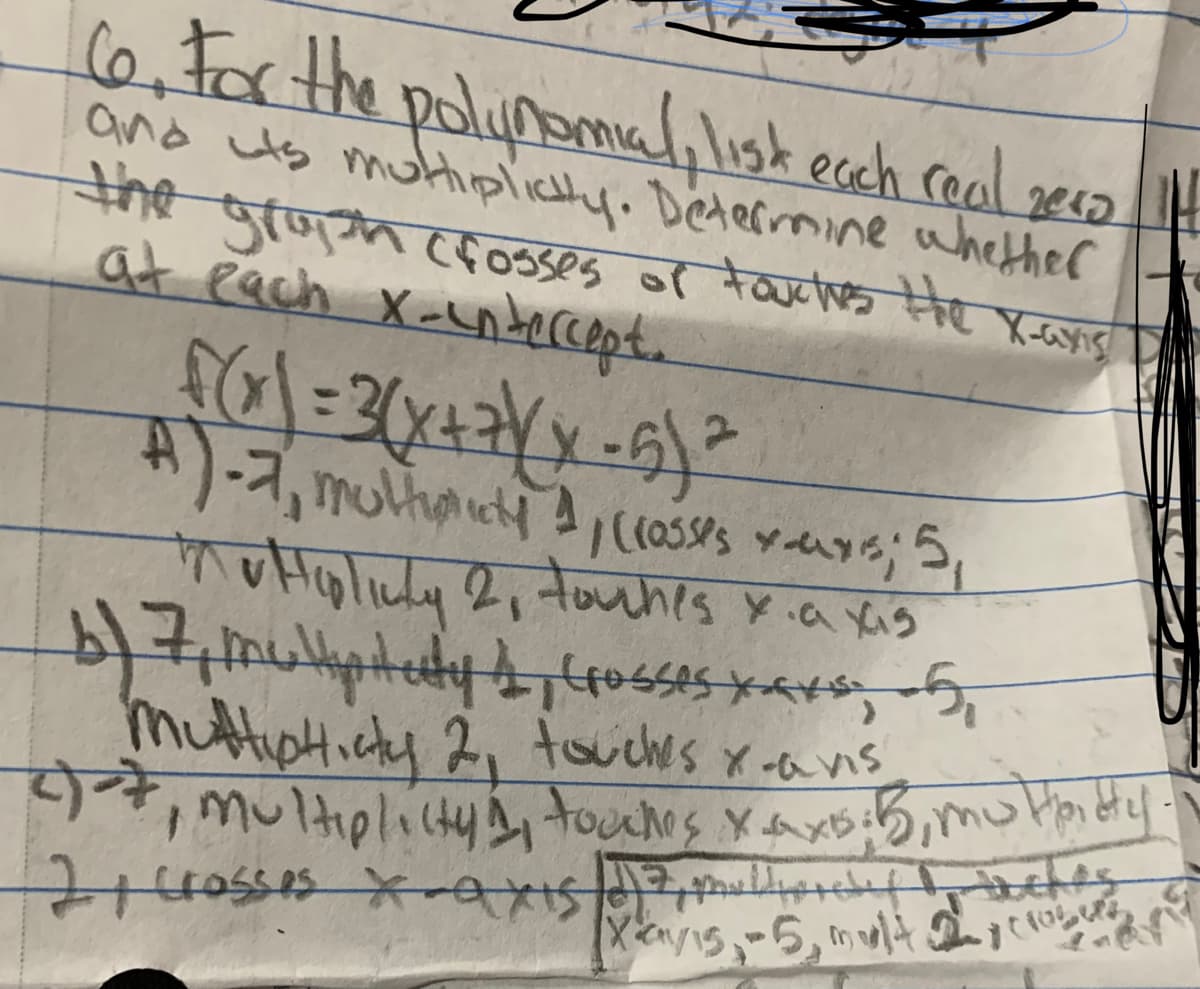 6. For the polynomial, list each real zero
and its multiplicity. Determine whether
the graph crosses or touches the x-axis
at each x-intercept.
f(x) = 3(x+7)(x-5)²
A) -7, multiplicity 1, crosses x-axis; 5,
multiplicity 2, touches x-axis
b) 7, multiplicity 1, crosses x-axis; -5,
multiplicity 2, touches x-axis
c) -7, multiplicity 1, touches x-axis; 5, multiplicity
2, crosses x-axis
d) 7, multiplicity 1, touches
x-axis, -5, mult 2, crosses